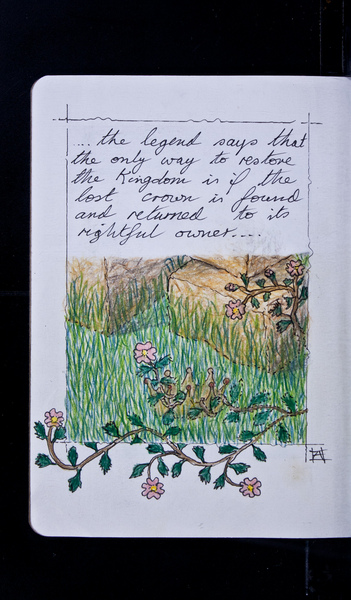 .... the legend says that
the only way to restore
the Kingdom is if the
lost crown is found
and returned to its
rightful owner....